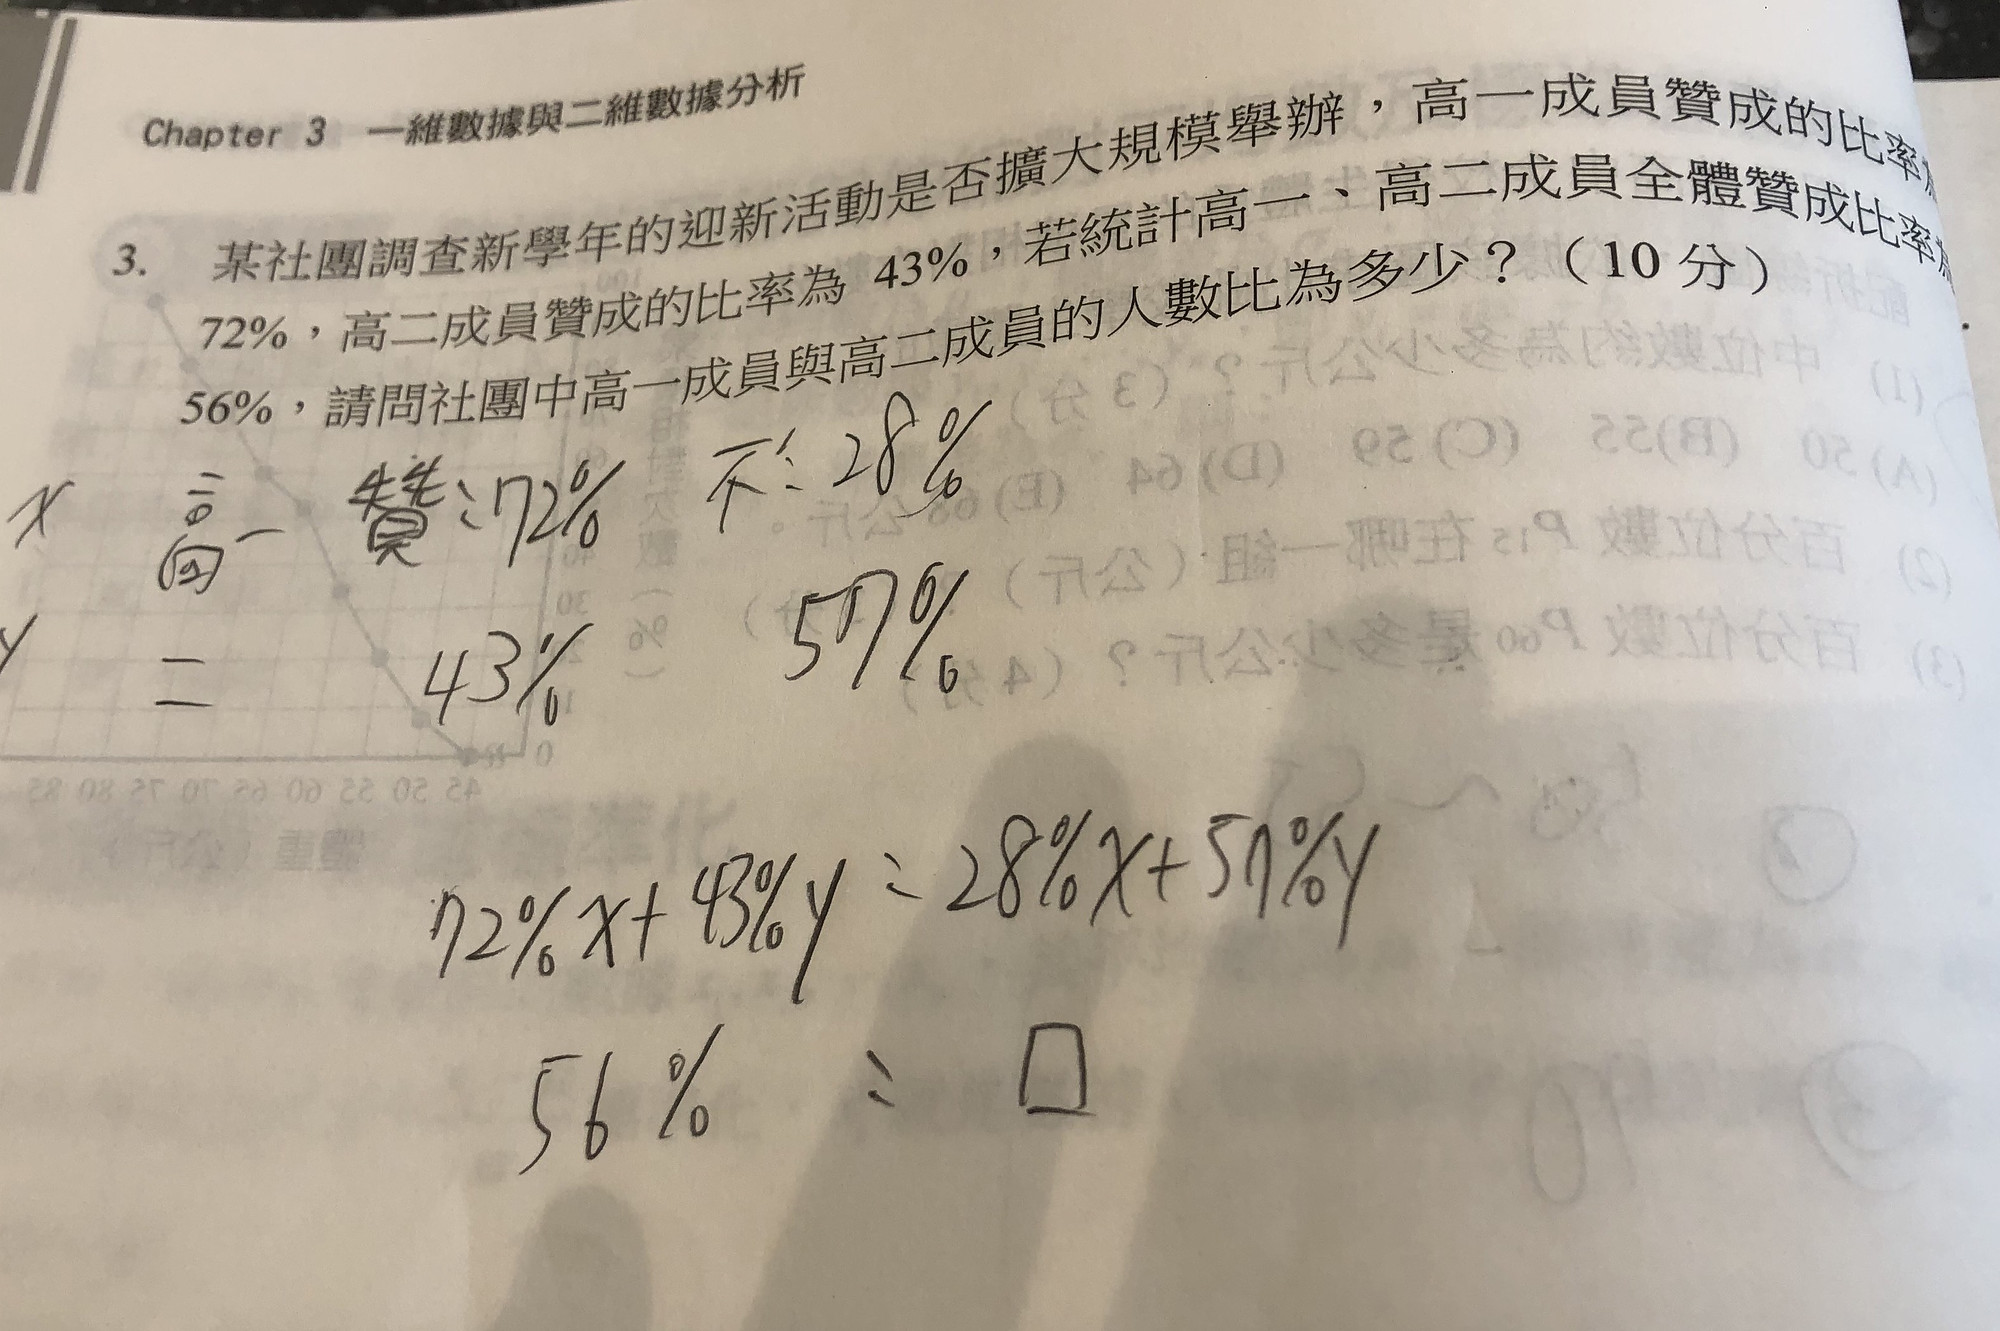 Chapter 3 一維數據與二維數據分析
3. 某社團調查新學年的迎新活動是否擴大規模舉辦，高一成員贊成的比率為
72%，高二成員贊成的比率為 43%，若統計高一、高二成員全體贊成比率為
56%，請問社團中高一成員與高二成員的人數比為多少？（10 分）
x 高一 贊：72% 不：28%
y 二 43% 57%
72%x+43%y：28%x+57%y
56% ： 口